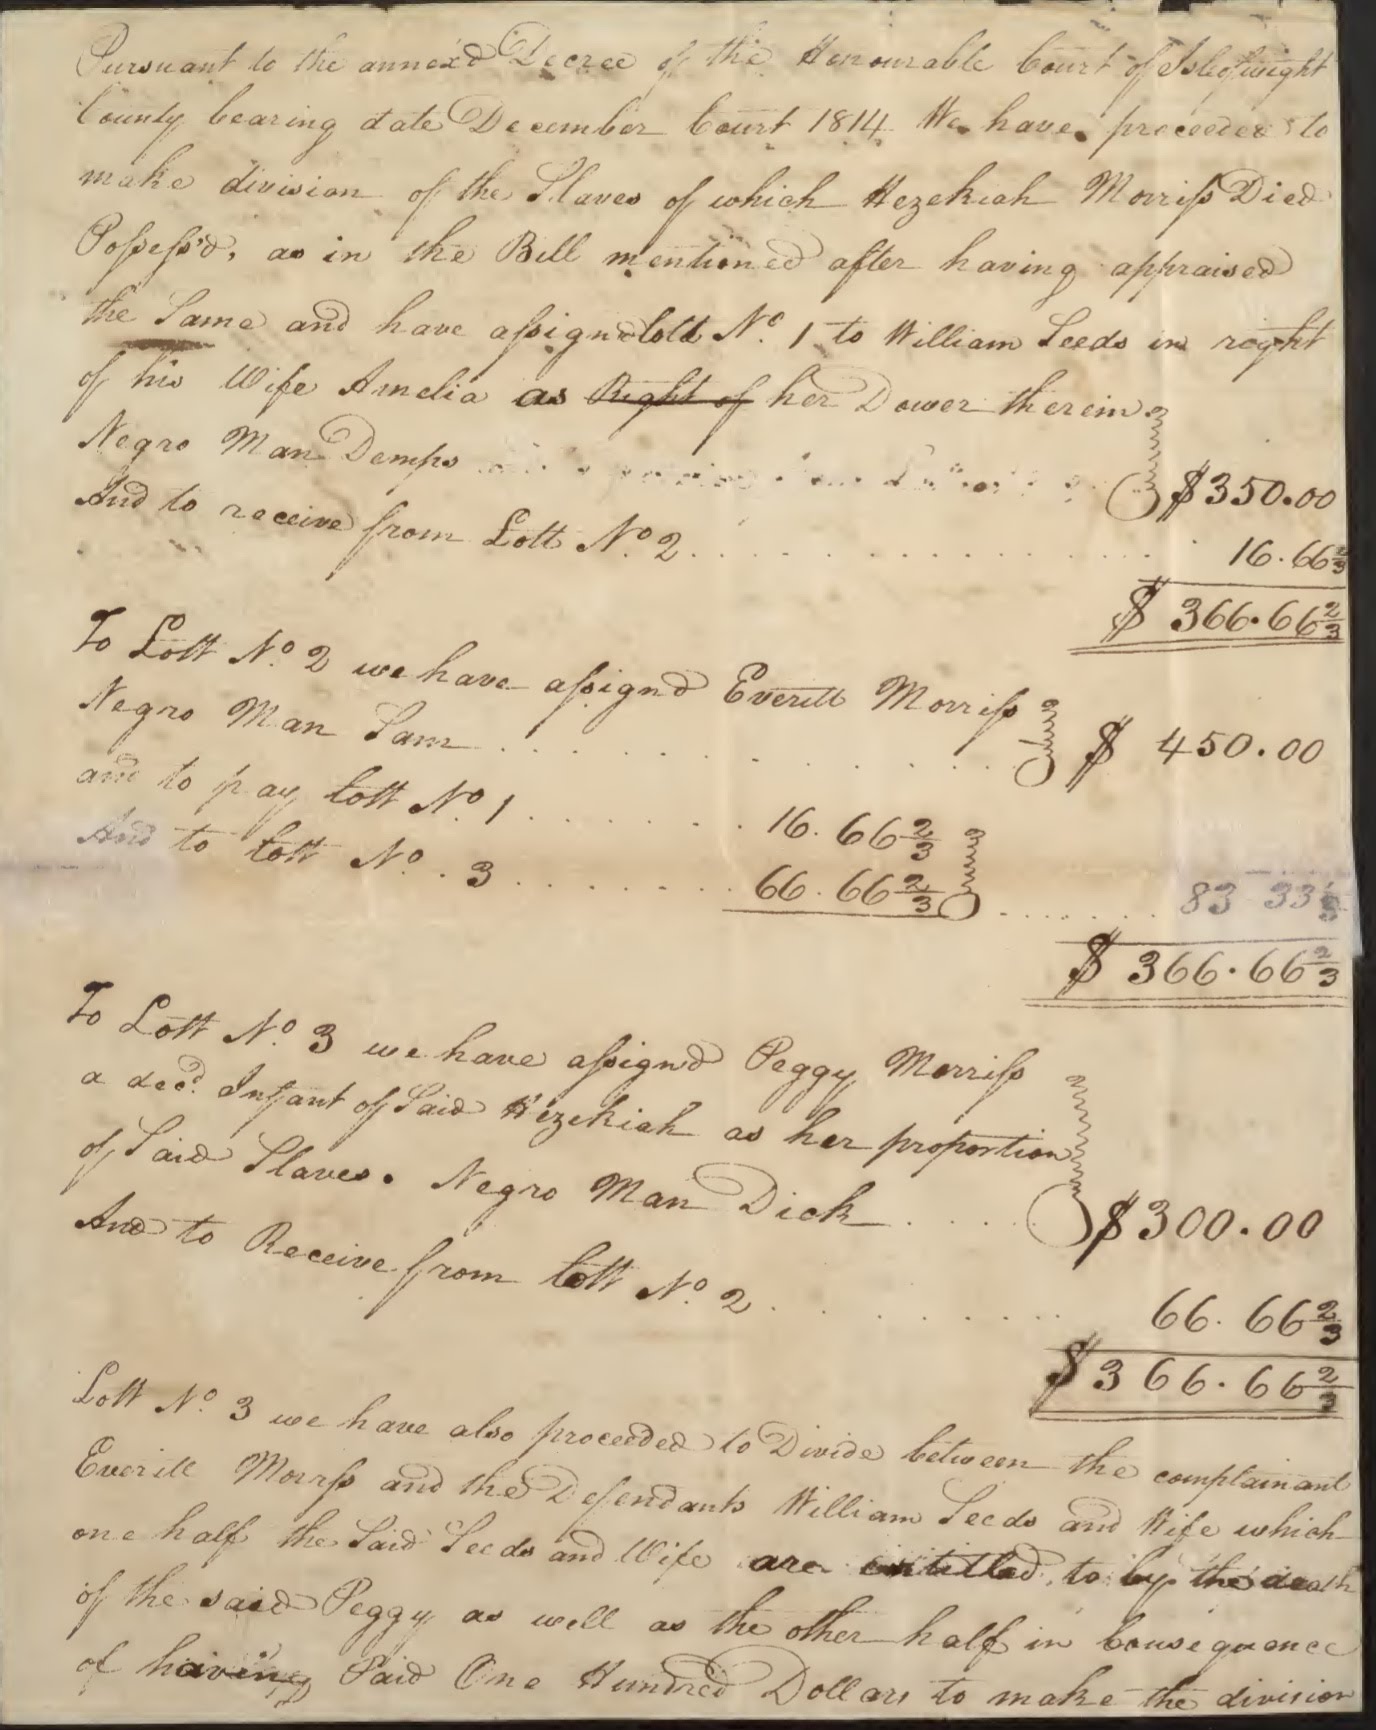 Pursuant to the annex'd Decree of the Honourable Court of Isleofwight
County bearing date December Court 1814 We have proceeded to
make division of the Slaves of which Hezekiah Morriss Died
Possess'd, as in the Bill mentioned after having appraised
the Same and have assign'd lott No. 1 to William Seeds in right
of his Wife Amelia as Right of her Dower therein
Negro Man Demps $350.00
And to receive from Lott No. 2 . . . . . . . . . . . . 16.66 2/3
$ 366.66 2/3
To Lott No. 2 we have assignd Everitt Morriss
Negro Man Sam . . . . . . . . . . $ 450.00
and to pay Lott No. 1 . . . . . . . 16.66 2/3
And to Lott No. 3 . . . . . . . . 66.66 2/3 . . . . . . . 83 33 1/3
$ 366.66 2/3
To Lott No. 3 we have assign'd Peggy Morriss
a decd. Infant of Said Hezekiah as her proportion
of Said Slaves. Negro Man Dick . . . . $300.00
And to Receive from Lott No. 2 . . . . . . . . . 66.66 2/3
$366.66 2/3
Lott No. 3 we have also proceeded to Divide between the complainant
Everitt Morriss and the Defendants William Seeds and Wife which
one half the Said Seeds and Wife are entitled to by the death
of the said Peggy as well as the other half in Consequence
of having Paid One Hundred Dollars to make the division